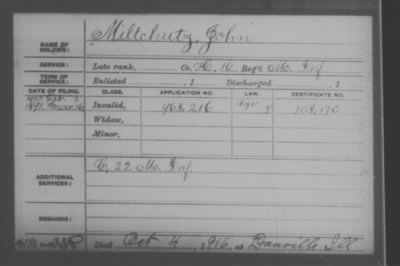 Miltchutz, John
NAME OF SOLDIER:
SERVICE: Late rank, Co. H, 10 Reg't Mo. Inf
TERM OF SERVICE: Enlisted , 1 Discharged , 1
DATE OF FILING. CLASS. APPLICATION NO. LAW. CERTIFICATE NO.
1891 Mar. 16 Invalid, 968,216 708,170
Widow,
Minor,
ADDITIONAL SERVICES: C, 22 Mo. Inf
REMARKS:
Died Oct 4, 1916, at Danville Ill